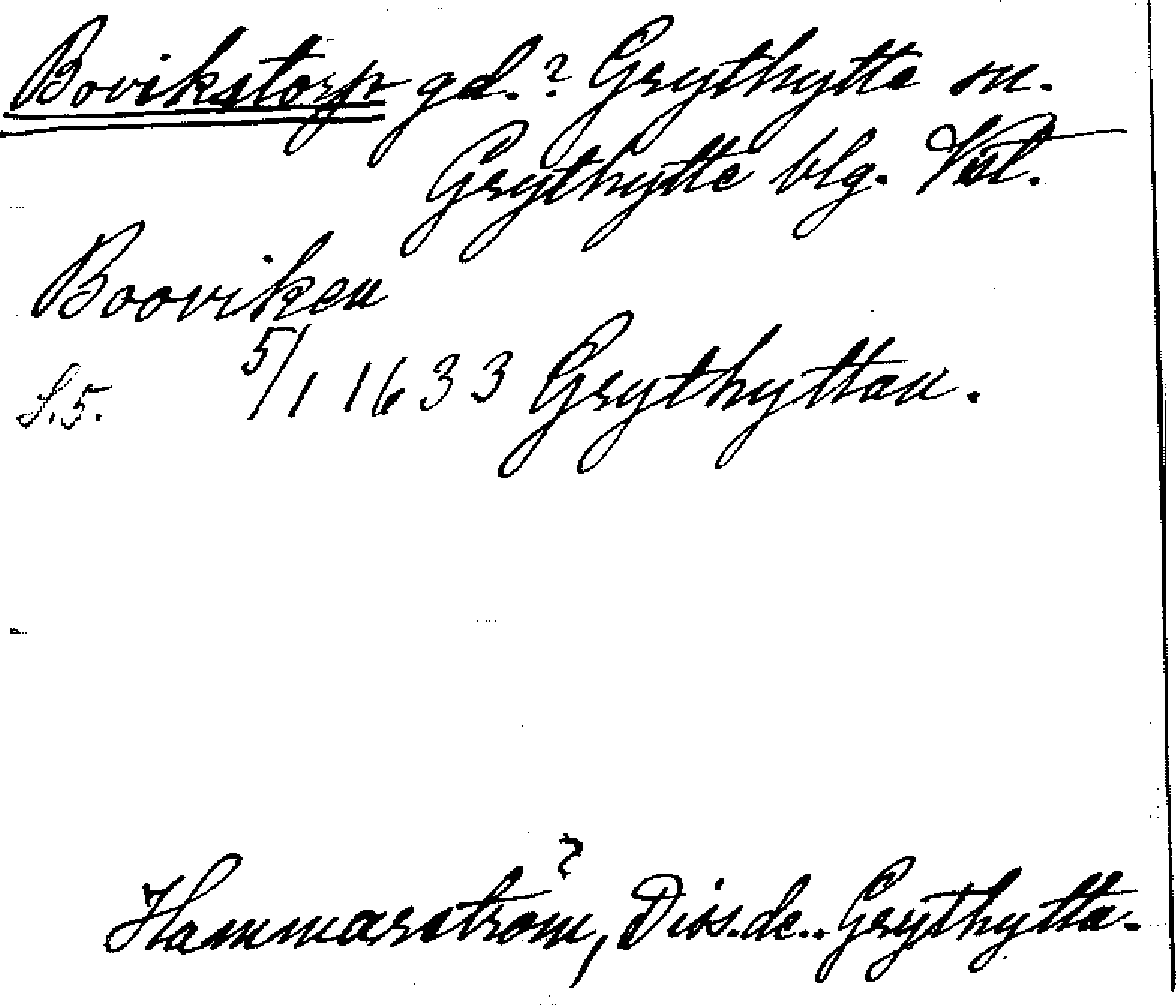 Bovikstorp gd.? Grythytte sn.
Grythytte blg. Vstl.
Booviken
S. 5. 5/1 1633 Grythyttan.
?
Hammarström, Diss. de.. Grythytta.